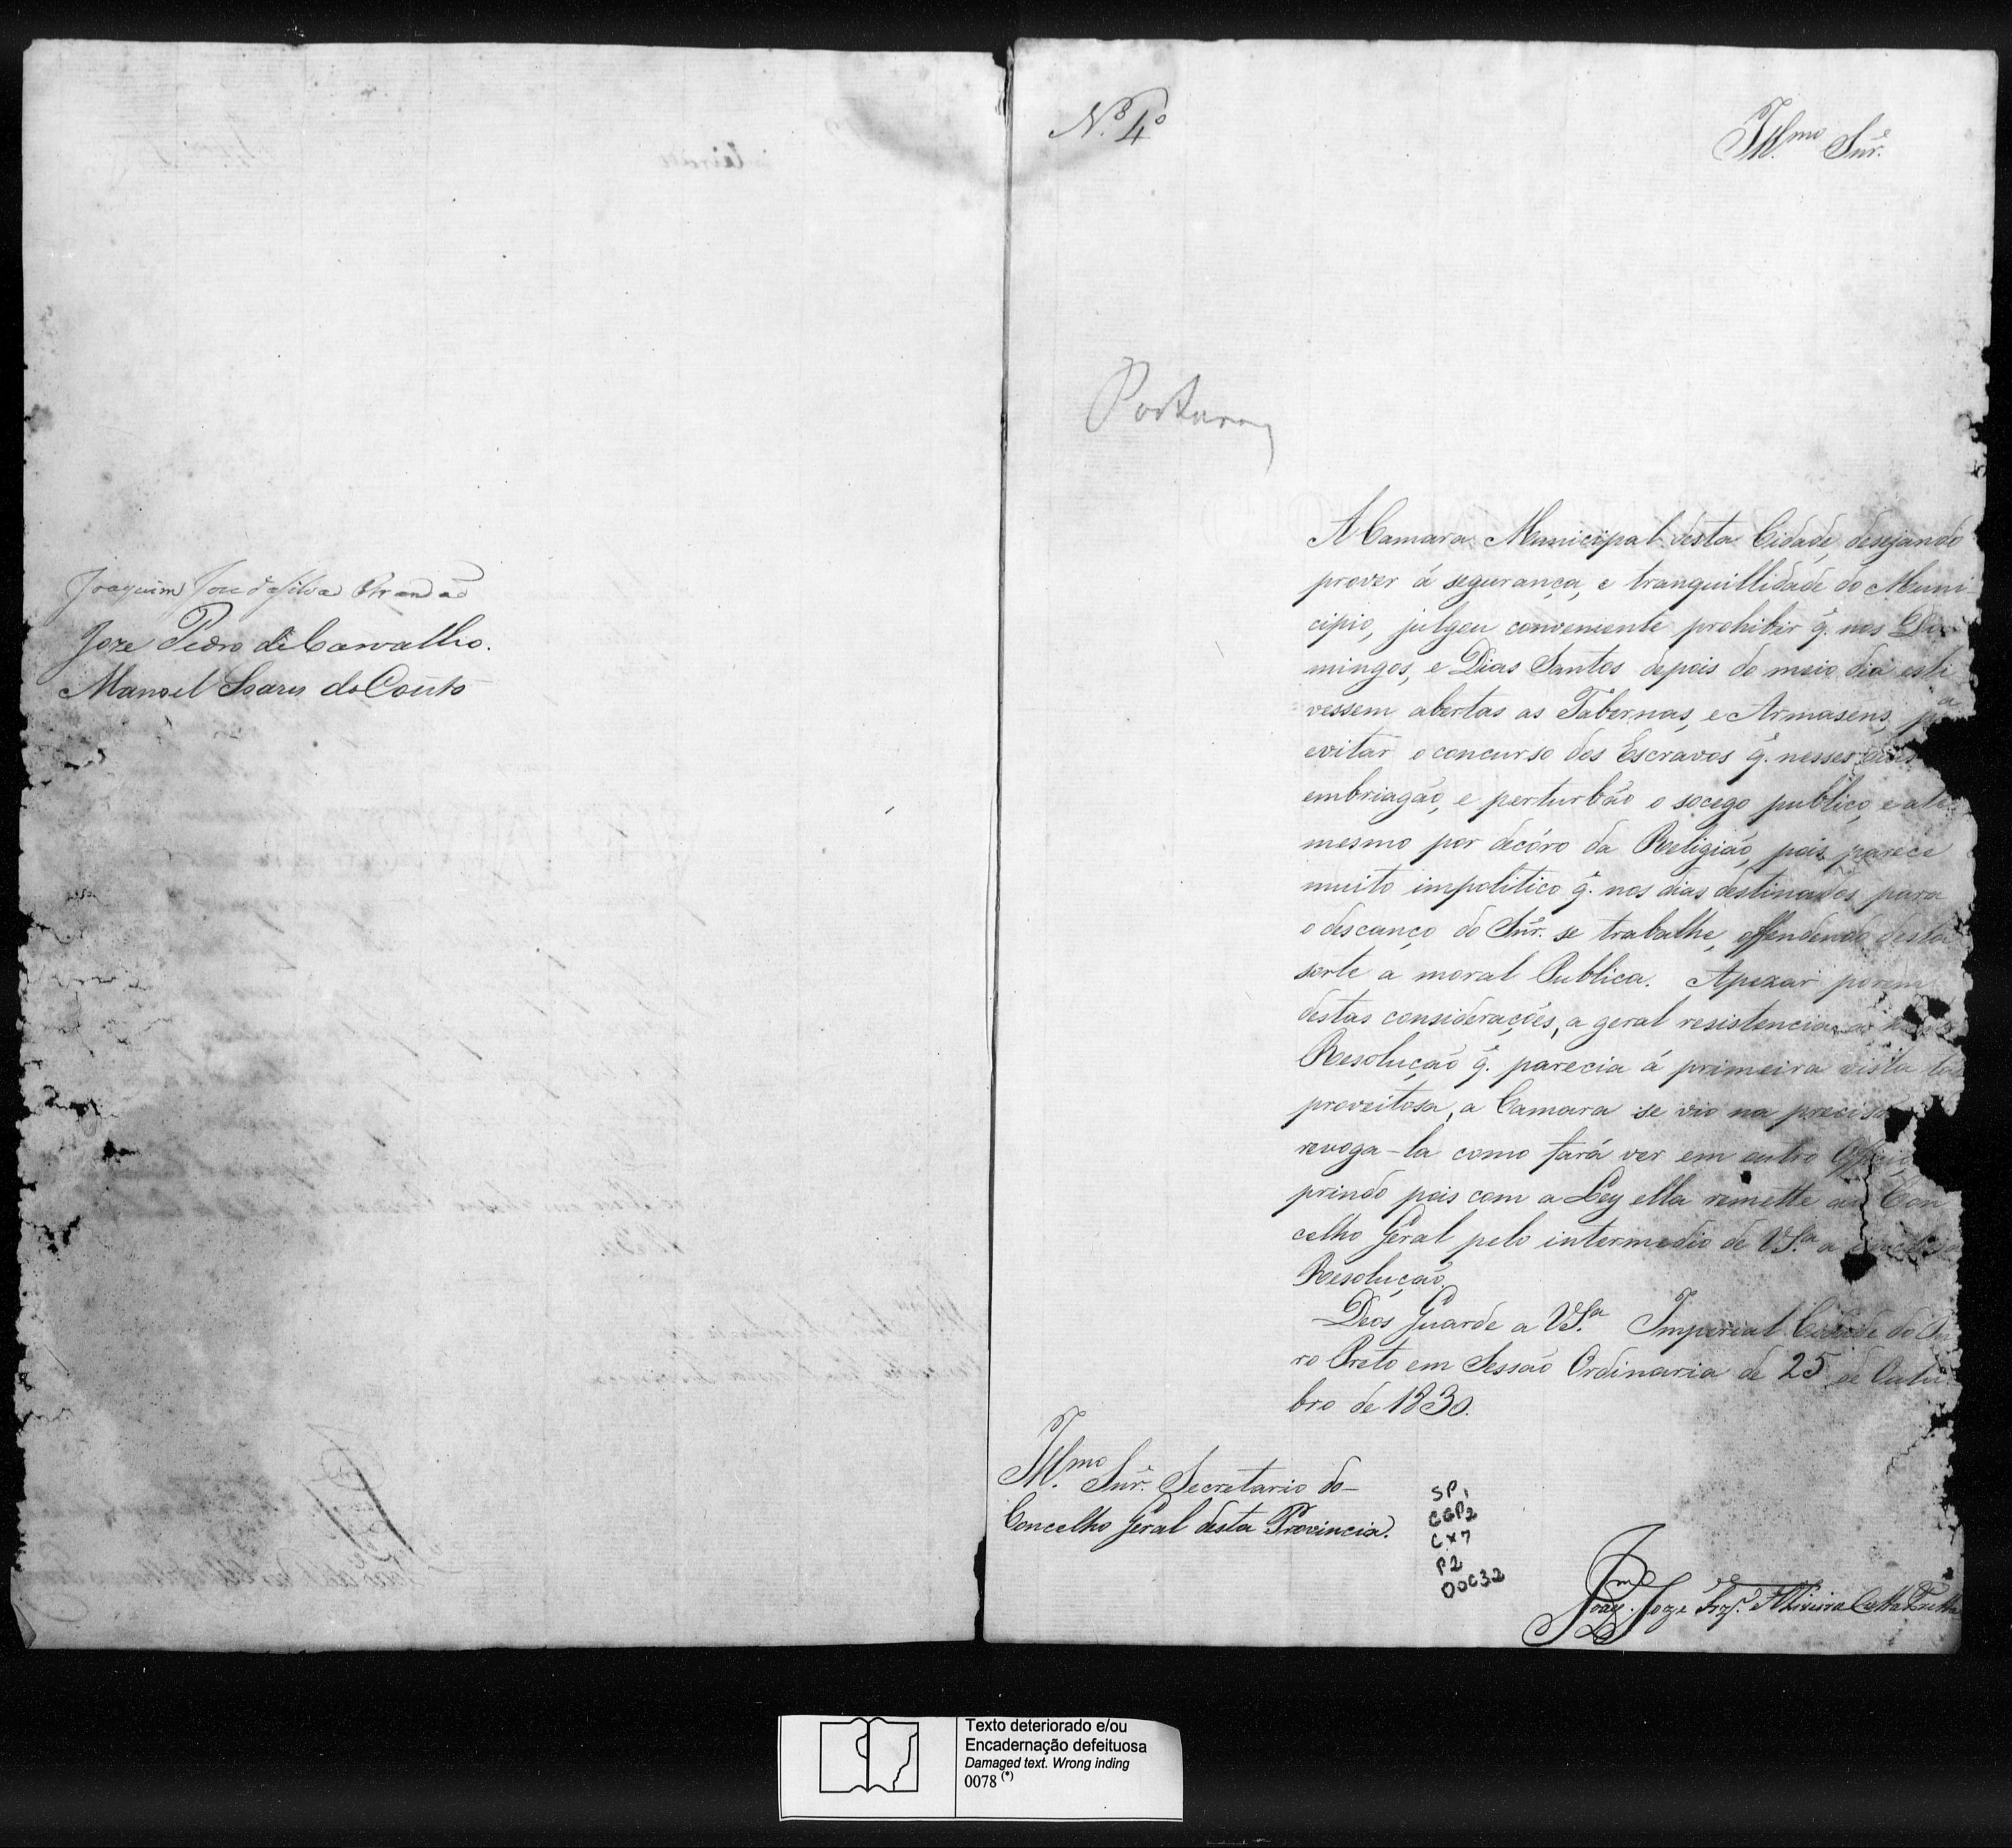 Joaquim Joze da Silva Brandaõ
Joze Pedro de Carvalho.
Manoel Soares do Couto
N.º 4º
Ill.mo Snr.
A Camara Municipal desta Cidade, desejando
prover á segurança, e tranquillidade do Muni-
cipio, julgou conveniente prohibir q. nos Do-
mingos, e Dias Santos depois do meio dia esti-
vessem abertas as Tabernas, e Armasens, p.a
evitar o concurso dos Escravos q. nesses dias
embriagão, e perturbão o socego publico, e até
mesmo por decóro da Religião, pois parece
muito impolitico q. nos dias destinados para
o descanço do Snr. se trabalhe, offendendo desta
sorte a moral Publica. Apezar porem
destas considerações, a geral resistencia
Resolução q. parecia á primeira vista tão
proveitosa, a Camara se vio na precisão
revoga-la como fará ver em outro Officio,
prindo pois com a Ley ella remette ao Con
celho Geral pelo intermedio de VS.a a
Resolução.
Deos Guarde a VS.a Imperial Cidade do Ou
ro Preto em Sessão Ordinaria de 25 de Outu-
bro de 1830.
Ill.mo Snr. Secretario do
Concelho Geral desta Provincia.
SP1
CGP2
CX7
P2
DOC32
Joaq.m Joze Frz.
Texto deteriorado e/ou
Encadernação defeituosa
Damaged text. Wrong inding
0078 (*)